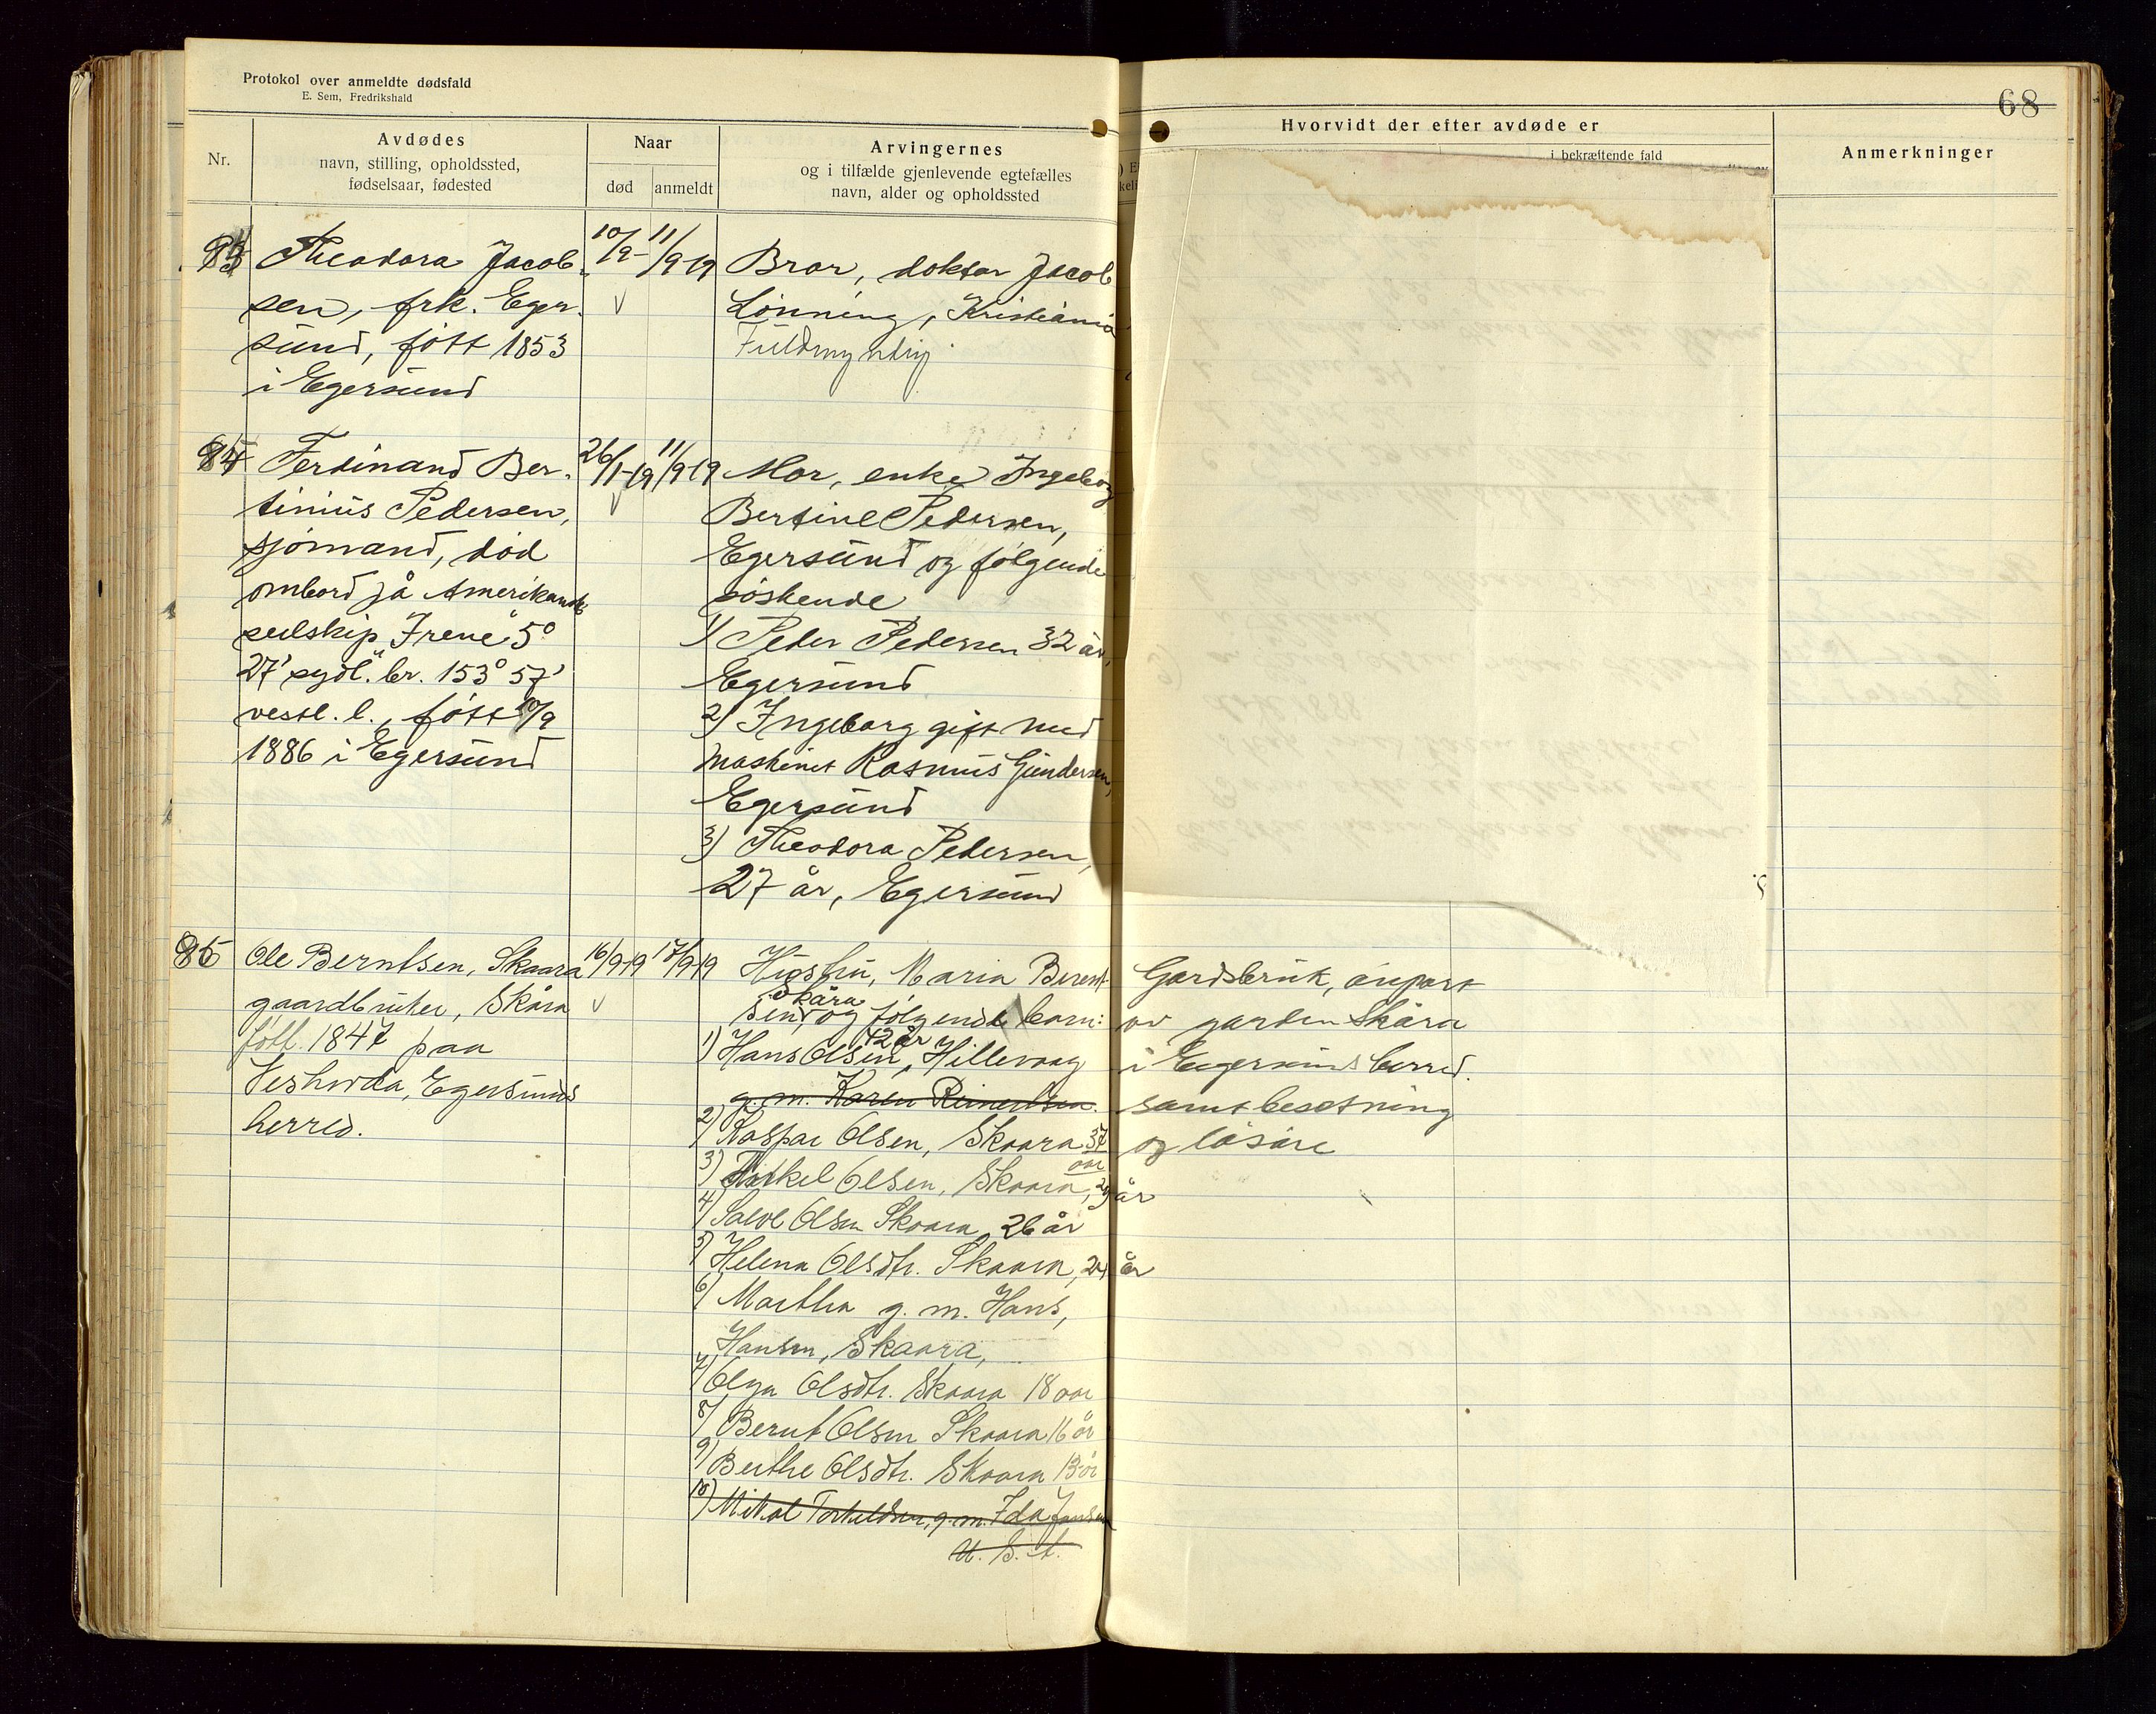 Protokol over anmeldte dødsfald
E. Sem, Fredrikshald
68
Nr.
Avdødes
navn, stilling, opholdssted,
fødselsaar, fødested
Naar
død
anmeldt
Arvingernes
og i tilfælde gjenlevende egtefælles
navn, alder og opholdssted
Hvorvidt der efter avdøde er
i bekræftende fald
Anmerkninger
Theodora Jacob-
sen, frk. Eger-
sund, født 1853
i Egersund
10/9- 11/9-19
Bror, doktor Jacob
Lönning, Kristiania
Fuldmyndig.
Ferdinand Ber-
tinius Pedersen,
sjømand, død
ombord på Amerikansk
seilskip "Irene" 5°
27' sydl. br. 153° 57'
vestl. l., født 10/9
1886 i Egersund
26/1-19 11/9-19
Mor, enke Ingeborg
Bertine Pedersen,
Egersund og følgende
søskende
1) Peder Pedersen 32 år,
Egersund
2) Ingeborg gift med
maskinist Rasmus Gundersen,
Egersund
3) Theodora Pedersen,
27 år, Egersund
Ole Berntsen, Skaara
gaardbruker, Skåra
født 1847 paa
Egersunds
herred.
16/9-19 17/9-19
Hustru, Maria Berent-
sen, Skåra og følgende barn:
1) Hans Olsen, 42 år, Hillevaag
g. m. Karen Reinertsen.
2) Kaspar Olsen, Skaara 37
aar
3) Torkel Olsen, Skaara, 29 år
4) Salve Olsen Skaara, 26 år
5) Helena Olsdtr. Skaara, 24 år
6) Martha g. m. Hans,
Hansen, Skaara,
7) Olga Olsdtr. Skaara 18 aar
8) Bernt Olsen Skaara 16 år
9) Berthe Olsdtr. Skaara 13 år
10) Mikal Torkeldsen, g. m. Ida Jansen
U. S. A.
Gardsbruk, anpart
av garden Skåra
i Egersunds herred.
samt besetning
og løsøre